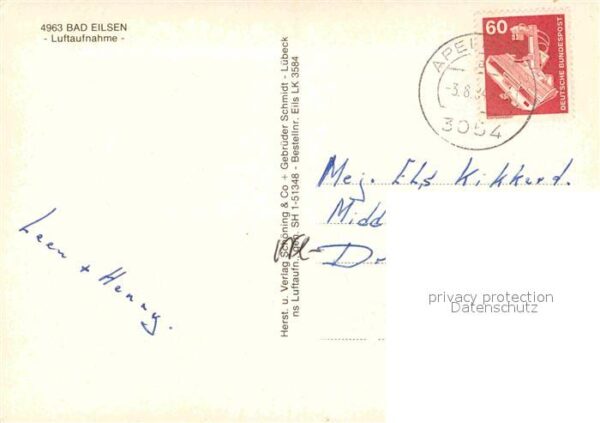 4963 BAD EILSEN
- Luftaufnahme -
Leen + Henny.
Herst. u. Verlag Schöning & Co + Gebrüder Schmidt - Lübeck
ns Luftaufn. SH 1-51348 - Bestellnr. Eils LK 3584
60
DEUTSCHE BUNDESPOST
APEL
-3.8.84
3054
Mej. Els Kikkerd.
Midd
NL- Dr
privacy protection
Datenschutz